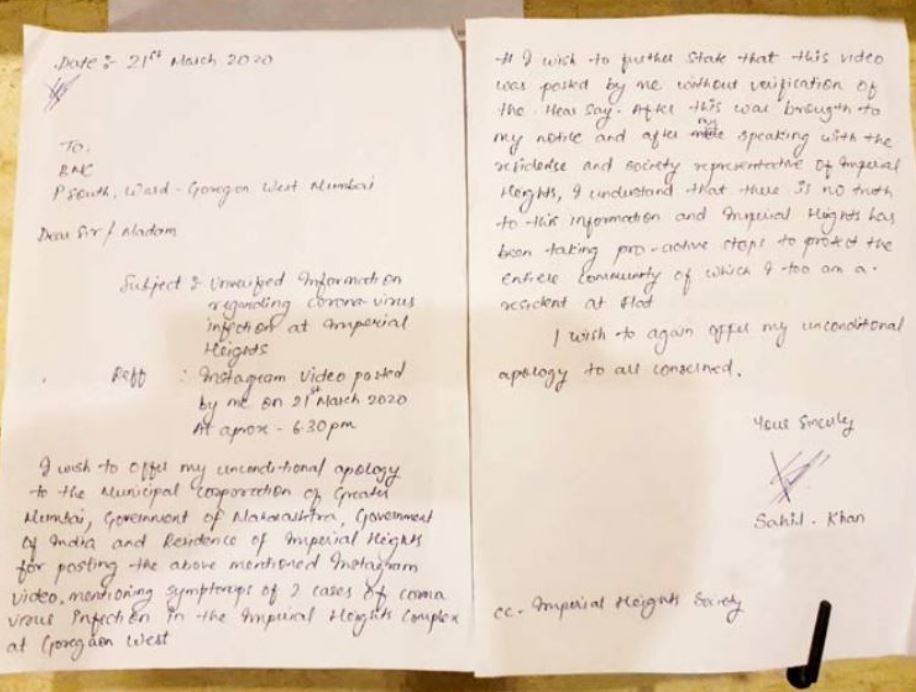 Date :- 21st March 2020
To.
BMC
P South, Ward - Goregon West Mumbai
Dear Sir / Madam
Subject :- Unverified Information
regarding corona virus
infection at Imperial
Heights
Reff : Instagram video posted
by me on 21st March 2020
At aprox - 6.30 pm
I wish to offer my unconditional apology
to the Municipal corporation of Greater
Mumbai, Government of Maharashtra, Government
of India and Residence of Imperial Heights
for posting the above mentioned Instagram
video, mentioning symptomps of 2 cases of corona
virus infection in the Imperial Heights Complex
at Goregaon West
I wish to further state that this video
was posted by me without verification of
the Hear say. After this was brought to
my notice and after my speaking with the
residense and society representative of Imperial
Heights, I understand that there is no truth
to this information and Imperial Heights has
been taking pro-active steps to protect the
entire community of which I too am a
resident at flat
I wish to again offer my unconditional
apology to all conserned.
Your Sincerly
Sahil . Khan
cc. Imperial Heights Society